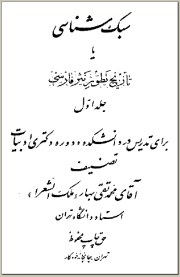 سبک شناسی
یا
تاریخ تطور نثر فارسی
جلد اول
برای تدریس در دانشکده و دوره دکتری ادبیات
تصنیف
آقای محمد تقی بهار «ملک الشعراء»
استاد دانشگاه تهران
حق چاپ محفوظ
تهران چاپخانه خودکار